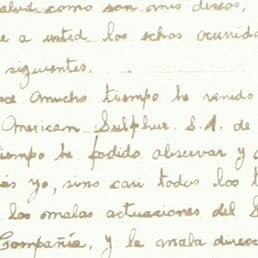 salud como son mis deseos,
e a usted los echos ocurrido
siguientes.
ace amucho tiempo he venido
American Sulphur S.A. de
iempo he podido observar y
és yo, sino casi todos los t
las malas actuaciones del S
Compañia, y la mala direcc